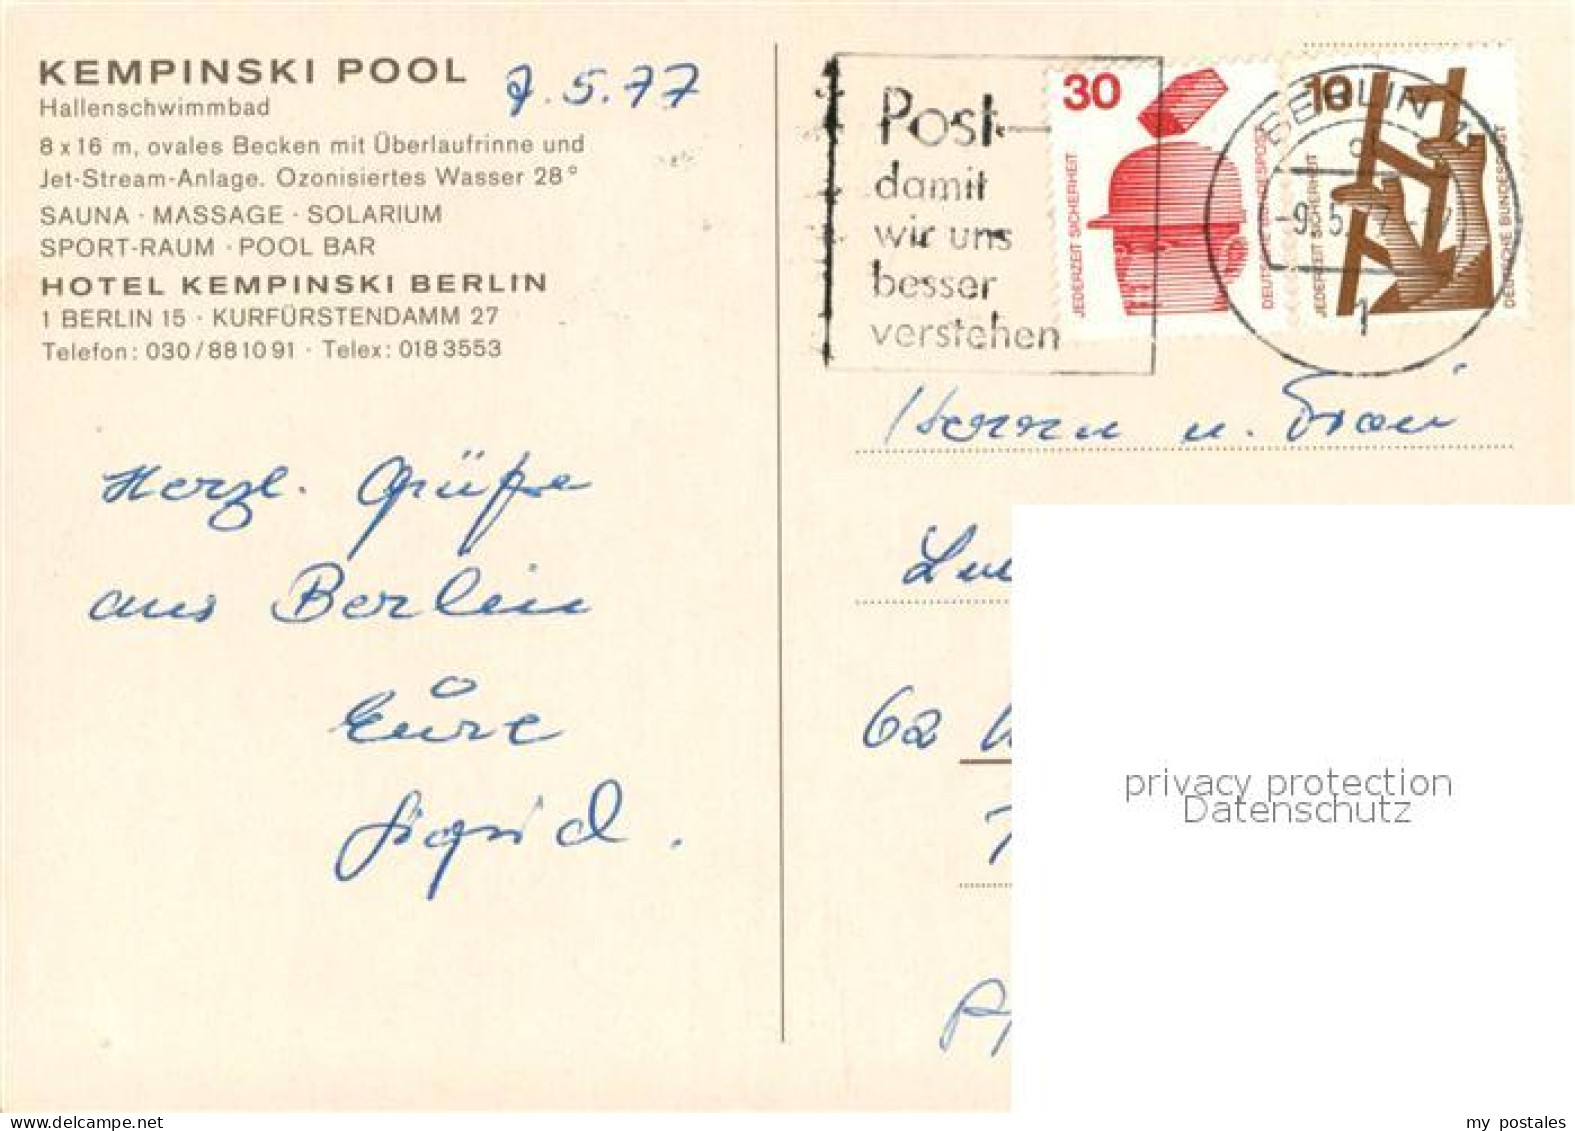 KEMPINSKI POOL
7.5.77
Hallenschwimmbad
8 x 16 m, ovales Becken mit Überlaufrinne und
Jet-Stream-Anlage. Ozonisiertes Wasser 28°
SAUNA · MASSAGE · SOLARIUM
SPORT-RAUM · POOL BAR
HOTEL KEMPINSKI BERLIN
1 BERLIN 15 · KURFÜRSTENDAMM 27
Telefon: 030/881091 · Telex: 0183553
Herzl. Grüße
aus Berlin
Eure
Sigrid.
Post-
damit
wir uns
besser
verstehen
30
JEDERZEIT SICHERHEIT
DEUTSCHE BUNDESPOST
10
JEDERZEIT SICHERHEIT
DEUTSCHE BUNDESPOST
BERLIN 1
-9.5.77
1
Herrn u. Frau
62
privacy protection
Datenschutz
www.delcampe.net
my_postales